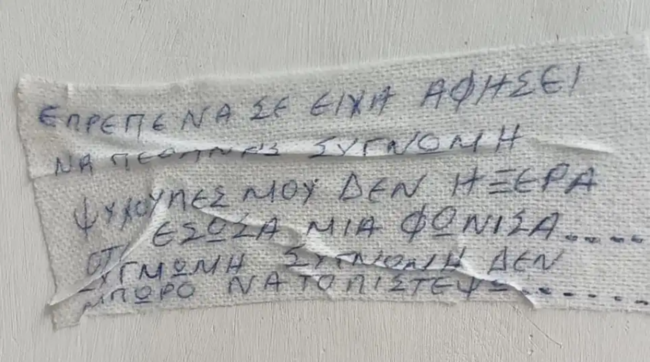 ΕΠΡΕΠΕ ΝΑ ΣΕ ΕΙΧΑ ΑΦΗΣΕΙ
ΝΑ ΠΕΘΑΝΕΙΣ ΣΥΓΝΩΜΗ
ΨΥΧΟΥΛΕΣ ΜΟΥ ΔΕΝ ΗΞΕΡΑ
ΟΤΙ ΕΣΩΣΑ ΜΙΑ ΦΩΝΙΣΑ.....
ΣΥΓΜΩΜΗ ΣΥΓΝΩΜΗ ΔΕΝ
ΜΠΩΡΟ ΝΑ ΤΟ ΠΙΣΤΕΨΩ.......